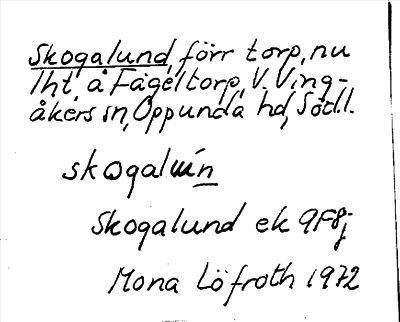 Skogalund, förr torp, nu
lht, å Fågeltorp, V. Ving-
åkers sn, Oppunda hd, Södl.
skogalún
Skogalund ek 9F8j
Mona Löfroth 1972